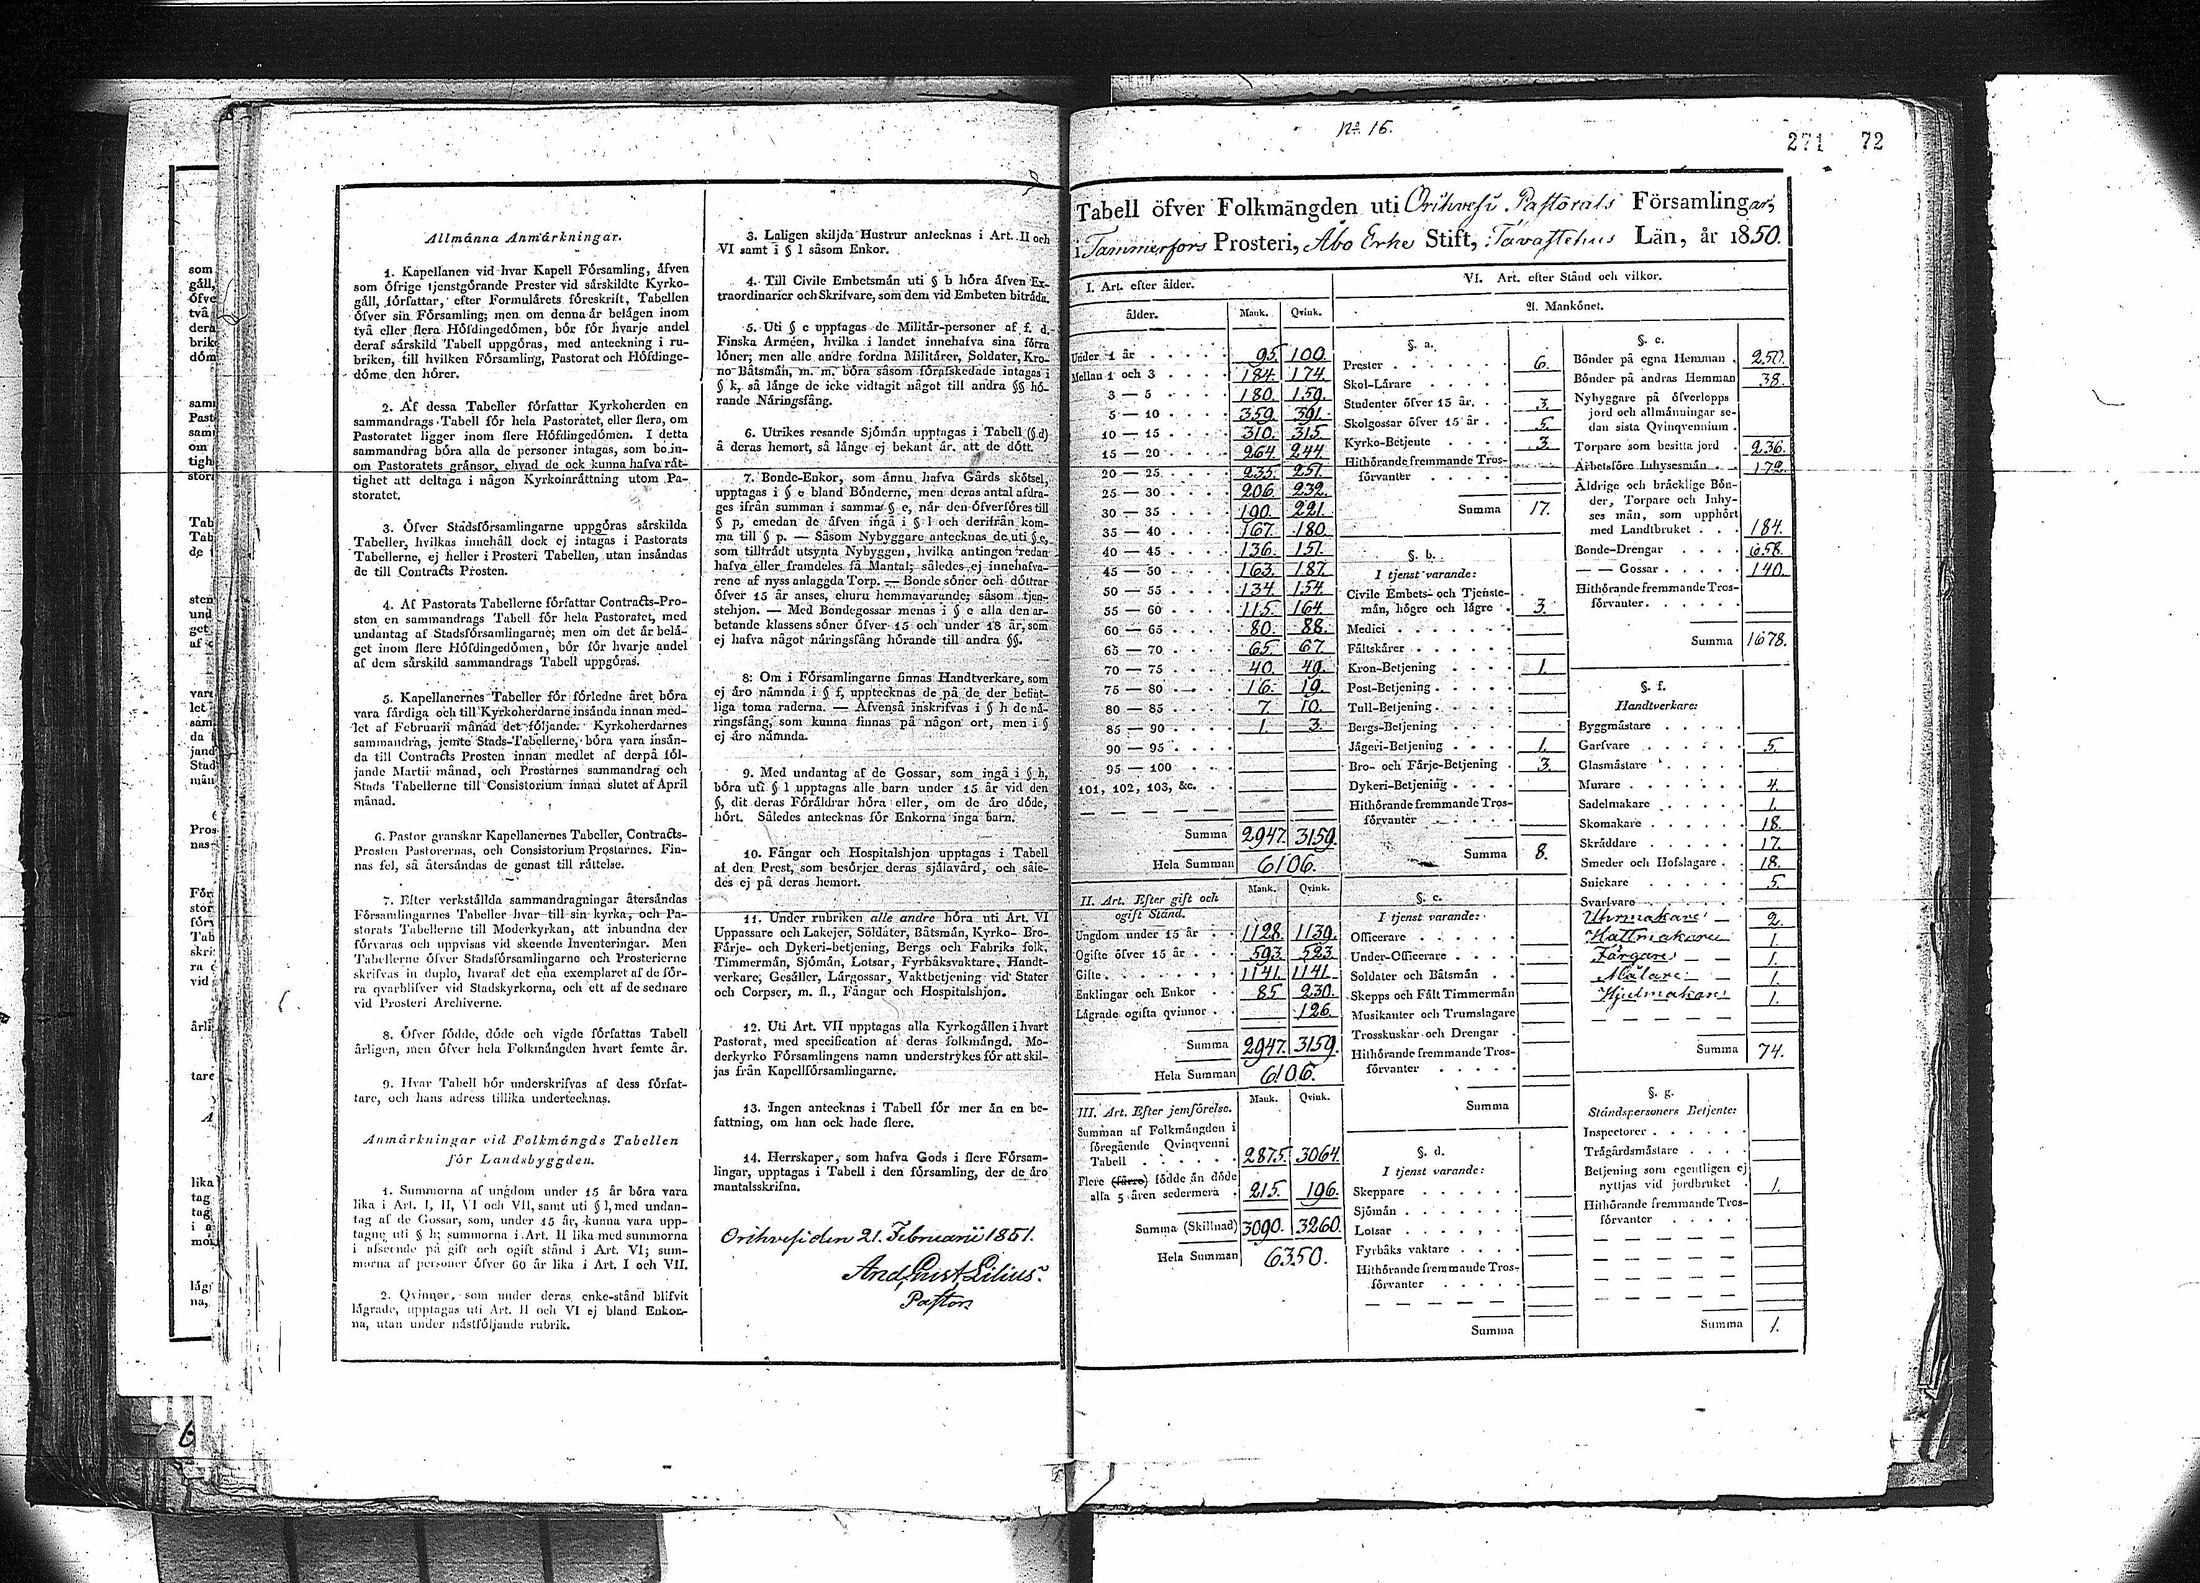 som
gåll,
öfve
två
dera
brik
dôm
sami
Past
sami
om
tigh
stor
Tab
Tab
de
sten
und
get
af
vara
let
sam
da
jand
Stad
mån
Pros
nas
För
stor
förv
Tab
skri
ra
vid
årli
tare
A
lika
tag
tag
i a
moi
låg
na,
6
Allmånna Anmårkningar.
1. Kapellanen vid hvar Kapell Församling, åfven
som öfrige tjenstgörande Prester vid sårskildte Kyrko-
gåll, författar, efter Formulårets föreskrift, Tabellen
öfver sin Församling; men om denna år belågen inom
två eller flera Höfdingedömen, bör för hvarje andel
deraf sårskild Tabell uppgöras, med anteckning i ru-
briken, till hvilken Församling, Pastorat och Höfdinge-
döme den hörer.
2. Af dessa Tabeller författar Kyrkoherden en
sammandrags Tabell för hela Pastoratet, eller flera, om
Pastoratet ligger inom flere Höfdingedömen. I detta
sammandrag böra alla de personer intagas, som bo in-
om Pastoratets grånsor, ehvad de ock kunna hafva råt-
tighet att deltaga i någon Kyrkoinråttning utom Pa-
storatet.
3. Öfver Stadsförsamlingarne uppgöras sårskilda
Tabeller, hvilkas innehåll dock ej intagas i Pastorats
Tabellerne, ej heller i Prosteri Tabellen, utan insåndas
de till Contracts Prosten.
4. Af Pastorats Tabellerne författar Contracts-Pro-
sten en sammandrags Tabell för hela Pastoratet, med
undantag af Stadsförsamlingarne; men om det år belå-
get inom flere Höfdingedömen, bör för hvarje andel
af dem sårskild sammandrags Tabell uppgöras.
5. Kapellanernes Tabeller för förledne året böra
vara fårdiga och till Kyrkoherdarne insånda innan med-
let af Februarii månad det följande. Kyrkoherdarnes
sammandrag, jemte Stads-Tabellerne, böra vara insån-
da till Contracts Prosten innan medlet af derpå föl-
jande Martii månad, och Prostarnes sammandrag och
Stads Tabellerne till Consistorium innan slutet af April
månad.
6. Pastor granskar Kapellanernes Tabeller, Contracts-
Prosten Pastorernas, och Consistorium Prostarnes. Fin-
nas fel, så återsåndas de genast till råttelse.
7. Efter verkstållda sammandragningar återsåndas
Församlingarnes Tabeller hvar till sin kyrka, och Pa-
storats Tabellerne till Moderkyrkan, att inbundna der
förvaras och uppvisas vid skeende Inventeringar. Men
Tabellerne öfver Stadsförsamlingarne och Prosterierne
skrifvas in duplo, hvaraf det ena exemplaret af de för-
ra qvarblifver vid Stadskyrkorna, och ett af de sednare
vid Prosteri Archiverne.
8. Öfver födde, döde och vigde författas Tabell
årligen, men öfver hela Folkmångden hvart femte år.
9. Hvar Tabell bör underskrifvas af dess förfat-
tare, och hans adress tillika undertecknas.
Anmårkningar vid Folkmångds Tabellen
för Landsbyggden.
1. Summorna af ungdom under 15 år böra vara
lika i Art. I, II, VI och VII, samt uti § l, med undan-
tag af de Gossar, som, under 15 år, kunna vara upp-
tagne uti § h; summorna i Art. II lika med summorna
i afseende på gift och ogift stånd i Art. VI; sum-
morna af personer öfver 60 år lika i Art. I och VII.
2. Qvinnor, som under deras enke-stånd blifvit
lågrade, upptagas uti Art. II och VI ej bland Enkor-
na, utan under nåstföljande rubrik.
3. Laligen skiljda Hustrur antecknas i Art. II och
VI samt i § l såsom Enkor.
4. Till Civile Embetsmån uti § b höra åfven Ex-
traordinarier och Skrifvare, som dem vid Embeten bitråda.
5. Uti § c upptagas de Militår-personer af f. d.
Finska Arméen, hvilka i landet innehafva sina förra
löner; men alle andre fordna Militårer, Soldater, Kro-
no Båtsmån, m. m. böra såsom förafskedade intagas i
§ k, så långe de icke vidtagit något till andra §§ hö-
rande Nåringsfång.
6. Utrikes resande Sjömån upptagas i Tabell (§ d)
å deras hemort, så långe ej bekant år, att de dött.
7. Bonde-Enkor, som ånnu hafva Gårds skötsel,
upptagas i § e bland Bönderne, men deras antal afdra-
ges ifrån summan i samma § e, når den öfverföres till
§ p, emedan de åfven ingå i § l och derifrån kom-
ma till § p. — Såsom Nybyggare antecknas de uti § e,
som tilltrådt utsynta Nybyggen, hvilka antingen redan
hafva eller framdeles få Mantal; således ej innehafva-
rene af nyss anlaggda Torp. — Bonde söner och döttrar
öfver 15 år anses, ehuru hemmavarande; såsom tjen-
stehjon. — Med Bondegossar menas i § e alla den ar-
betande klassens söner öfver 15 och under 18 år, som
ej hafva något nåringsfång hörande till andra §§.
8: Om i Församlingarne finnas Handtverkare, som
ej åro nåmnda i § f, upptecknas de på de der befint-
liga toma raderna. — Åfvenså inskrifvas i § h de nå-
ringsfång, som kunna finnas på någon ort, men i §
ej åro nåmnda.
9. Med undantag af de Gossar, som ingå i § h,
böra uti § l upptagas alle barn under 15 år vid den
§, dit deras Föråldrar höra eller, om de åro döde,
hört. Således antecknas för Enkorna inga barn.
10. Fångar och Hospitalshjon upptagas i Tabell
af den Prest, som besörjer deras sjålavård, och såle-
des ej på deras hemort.
11. Under rubriken alle andre höra uti Art. VI
Uppassare och Lakejer, Soldater, Båtsmån, Kyrko- Bro-
Fårje- och Dykeri-betjening, Bergs och Fabriks folk,
Timmermån, Sjömån, Lotsar, Fyrbåksvaktare, Handt-
verkare, Gesåller, Lårgossar, Vaktbetjening vid Stater
och Corpser, m. fl., Fångar och Hospitalshjon.
12. Uti Art. VII upptagas alla Kyrkogållen i hvart
Pastorat, med specification af deras folkmångd. Mo-
derkyrko Församlingens namn understrykes för att skil-
jas från Kapellförsamlingarne.
13. Ingen antecknas i Tabell för mer ån en be-
fattning, om han ock hade flere.
14. Herrskaper, som hafva Gods i flere Försam-
lingar, upptagas i Tabell i den församling, der de åro
mantalsskrifna.
Orihvesi den 21. Februarii 1851.
And. Gust. Lilius.
Pastor
No 16.
271 72
Tabell öfver Folkmängden uti Orihvesi Pastorats Församlingar,
i Tammerfors Prosteri, Åbo Erke Stift, Tavastehus Län, år 1850.
I. Art. efter ålder.
ålder. Mank. Qvink.
Under 1 år 95. 100.
Mellan 1 och 3 184. 174.
3 — 5 180. 159.
5 — 10 359. 391.
10 — 15 310. 315.
15 — 20 264. 244.
20 — 25 235. 251.
25 — 30 206. 232.
30 — 35 190. 221.
35 — 40 167. 180.
40 — 45 136. 151.
45 — 50 163. 187.
50 — 55 134. 154.
55 — 60 115. 164.
60 — 65 80. 88.
65 — 70 65. 67.
70 — 75 40. 49.
75 — 80 16. 19.
80 — 85 7. 10.
85 — 90 1. 3.
90 — 95
95 — 100
101, 102, 103, &c.
Summa 2947. 3159.
Hela Summan 6106.
II. Art. Efter gift och ogift Stånd. Mank. Qvink.
Ungdom under 15 år 1128. 1139.
Ogifte öfver 15 år 593. 523.
Gifte 1141. 1141.
Enklingar och Enkor 85. 230.
Lågrade ogifta qvinnor 126.
Summa 2947. 3159.
Hela Summan 6106.
III. Art. Efter jemförelse. Mank. Qvink.
Summan af Folkmångden i
föregående Qvinqvenni
Tabell 2875. 3064.
Flere (fårre) födde ån döde
alla 5 åren sedermera 215. 196.
Summa (Skillnad) 3090. 3260.
Hela Summan 6350.
VI. Art. efter Stånd och vilkor.
A. Mankönet.
§. a.
Prester 6.
Skol-Lårare
Studenter öfver 15 år. 3.
Skolgossar öfver 15 år 5.
Kyrko-Betjente 3.
Hithörande fremmande Tros-
förvanter
Summa 17.
§. b.
I tjenst varande:
Civile Embets- och Tjenste-
mån, högre och lågre 3.
Medici
Fåltskårer
Kron-Betjening 1.
Post-Betjening
Tull-Betjening
Bergs-Betjening
Jågeri-Betjening 1.
Bro- och Fårje-Betjening 3.
Dykeri-Betjening
Hithörande fremmande Tros-
förvanter
Summa 8.
§. c.
I tjenst varande:
Officerare
Under-Officerare
Soldater och Båtsmån
Skepps och Fålt Timmermån
Musikanter och Trumslagare
Trosskuskar och Drengar
Hithörande fremmande Tros-
förvanter
Summa
§. d.
I tjenst varande:
Skeppare
Sjömån
Lotsar
Fyrbåks vaktare
Hithörande fremmande Tros-
förvanter
Summa
§. e.
Bönder på egna Hemman 250.
Bönder på andras Hemman 38.
Nybyggare på öfverlopps
jord och allmånningar se-
dan sista Qvinqvennium
Torpare som besitta jord 236.
Arbetsföre Inhysesmån 172.
Åldrige och bråcklige Bön-
der, Torpare och Inhy-
ses mån, som upphört
med Landtbruket 184.
Bonde-Drengar 658.
— — Gossar 140.
Hithörande fremmande Tros-
förvanter
Summa 1678.
§. f.
Handtverkare:
Byggmåstare
Garfvare 5.
Glasmåstare
Murare 4.
Sadelmakare 1.
Skomakare 18.
Skråddare 17.
Smeder och Hofslagare 18.
Snickare 5.
Svarfvare
Uhrmakare — 2.
Hattmakare 1.
Färgare — — 1.
Målare — 1.
Hjulmakare 1.
Summa 74.
§. g.
Ståndspersoners Betjente:
Inspectorer
Trågårdsmåstare
Betjening som egentligen ej
nyttjas vid jordbruket 1.
Hithörande fremmande Tros-
förvanter
Summa 1.